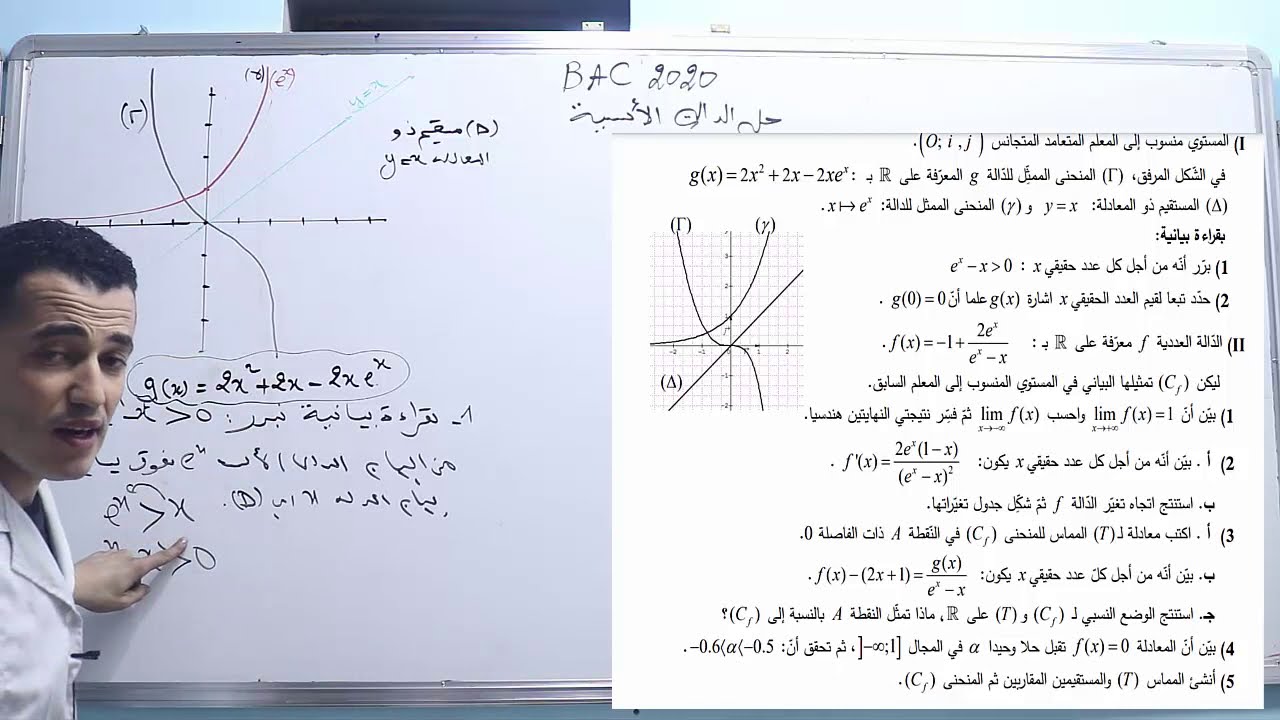 BAC 2020
حل الدالة الأسية
(Γ)
(γ)
(eˣ)
y=x
(D) مستقيم ذو
المعادلة y=x
g(x) = 2x²+2x-2xeˣ
1- بقراءة بيانية نبرر: x>0
من البياني الدالة الأسية eˣ فوق
بيان الدالة x أي (D).
eˣ > x
x>0
I) المستوي منسوب إلى المعلم المتعامد المتجانس (O; i, j).
في الشكل المرفق، (Γ) المنحنى الممثل للدالة g المعرّفة على ℝ بـ: g(x)=2x²+2x-2xeˣ
(Δ) المستقيم ذو المعادلة: y=x و (γ) المنحنى الممثل للدالة: x↦eˣ.
بقراءة بيانية:
1) برّر أنّه من أجل كل عدد حقيقي x : eˣ-x>0
2) حدّد تبعا لقيم العدد الحقيقي x اشارة g(x) علما أنّ g(0)=0 .
II) الدّالة العددية f معرّفة على ℝ بـ: f(x)=-1+2eˣ/(eˣ-x).
ليكن (C_f) تمثيلها البياني في المستوي المنسوب إلى المعلم السابق.
1) بيّن أنّ lim_{x→+∞} f(x)=1 واحسب lim_{x→-∞} f(x) ثمّ فسّر نتيجتي النهايتين هندسيا.
2) أ . بيّن أنّه من أجل كل عدد حقيقي x يكون: f'(x)=2eˣ(1-x)/(eˣ-x)² .
ب. استنتج اتجاه تغيّر الدّالة f ثمّ شكّل جدول تغيّراتها.
3) أ . اكتب معادلة لـ (T) المماس للمنحنى (C_f) في النّقطة A ذات الفاصلة 0.
ب. بيّن أنّه من أجل كلّ عدد حقيقي x يكون: f(x)-(2x+1)=g(x)/(eˣ-x).
جـ. استنتج الوضع النسبي لـ (C_f) و (T) على ℝ، ماذا تمثّل النقطة A بالنسبة إلى (C_f)؟
4) بيّن أنّ المعادلة f(x)=0 تقبل حلا وحيدا α في المجال ]-∞;1]، ثم تحقق أنّ: -0.6⟨α⟨-0.5.
5) أنشئ المماس (T) والمستقيمين المقاربين ثم المنحنى (C_f).
(Γ)
(γ)
3
2
-2
-1
1
2
-1
(Δ)
-2